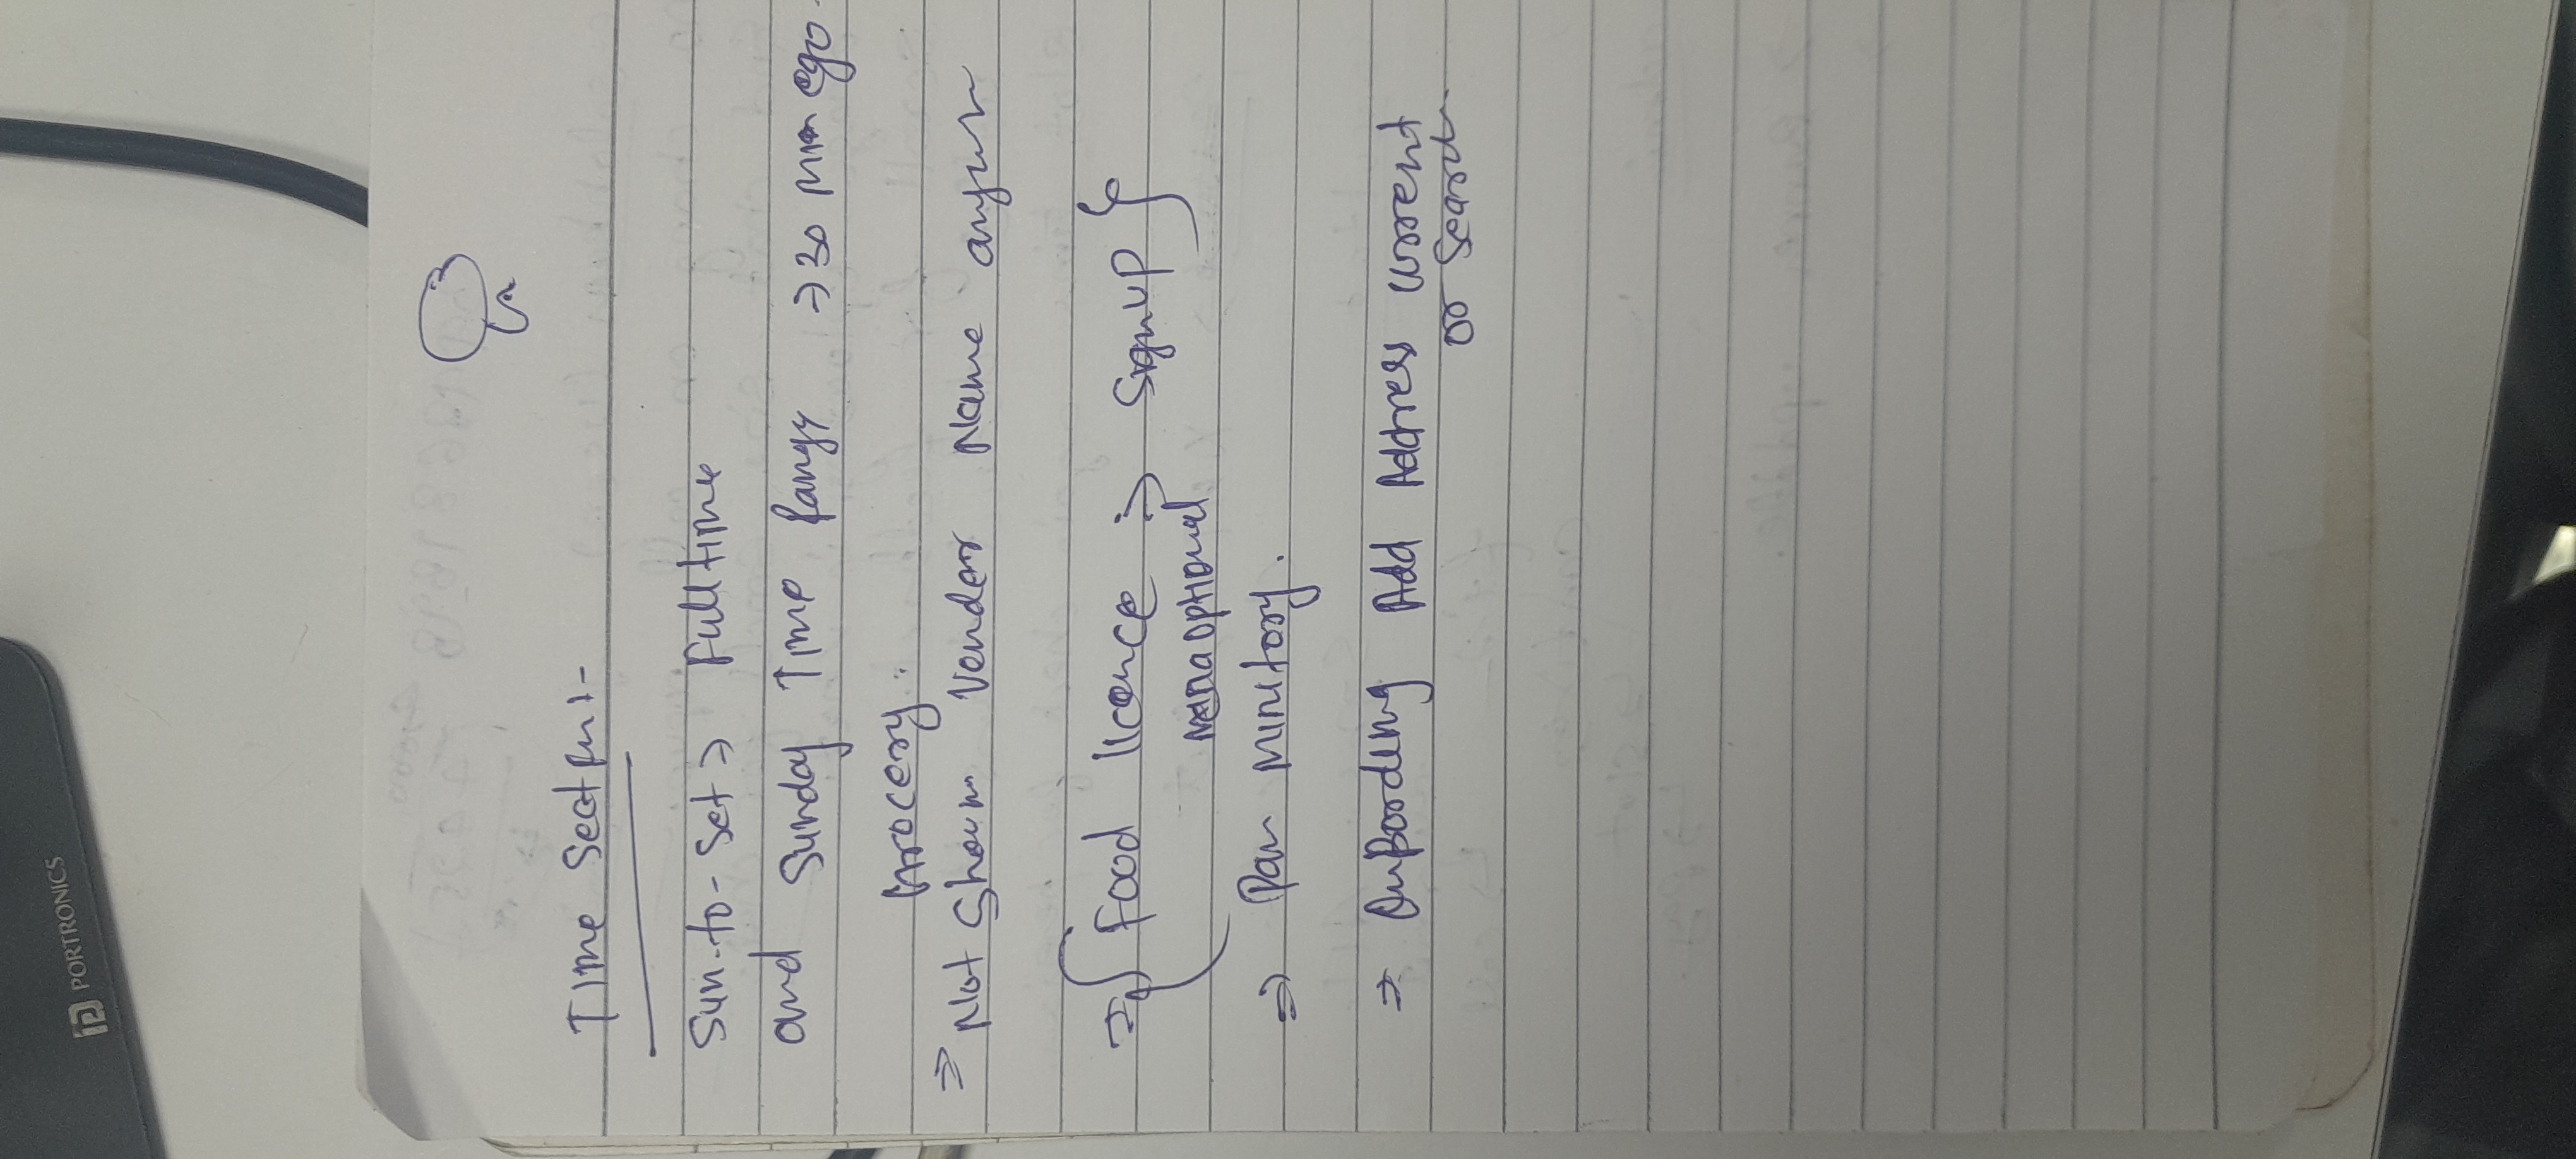 PORTRONICS
Time Section :-
Sun-to-Set => Full time
and Sunday Time Range -> 30 Min ego
Grocery :
=> Not Shown Vendor Name
=> { Food licence => Signup }
optional
=> Pan Minitory.
=> OnBording Add Address current
or Search